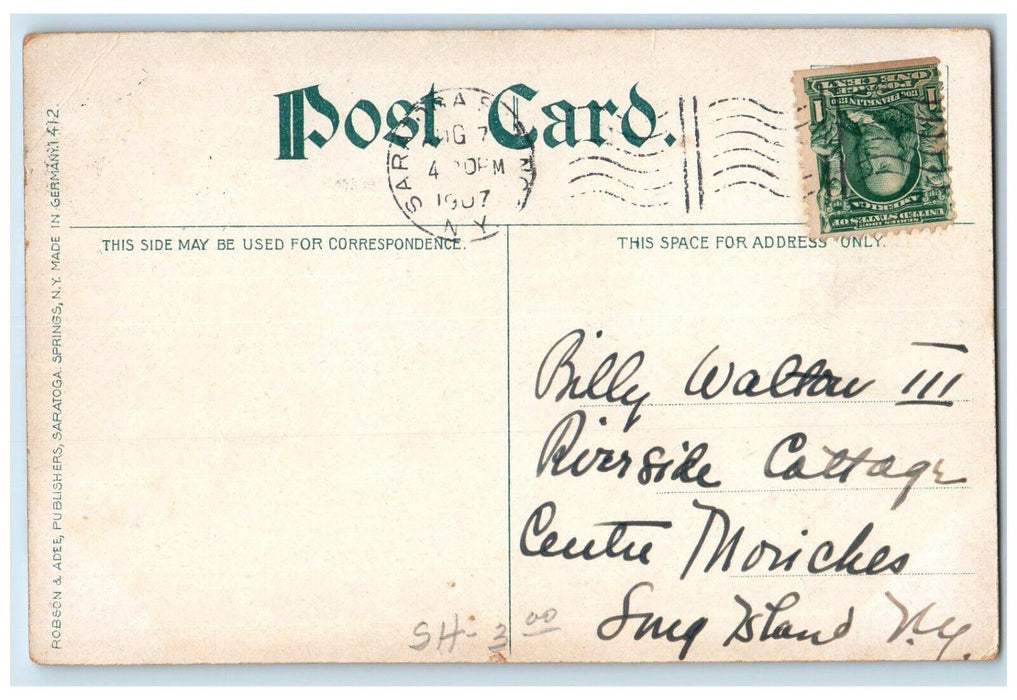 Post Card.
SARATOGA SP'GS N.Y.
AUG 7
4 30PM
1907
N.Y.
UNITED STATES OF AMERICA
FRANKLIN
POSTAGE
1 ONE CENT 1
THIS SIDE MAY BE USED FOR CORRESPONDENCE.
THIS SPACE FOR ADDRESS ONLY.
Billy Walton III
Riverside Cottage
Centre Moriches
Long Island N.Y.
SH-3 00
ROBSON & ADEE, PUBLISHERS, SARATOGA SPRINGS, N.Y. MADE IN GERMANY. 1412.